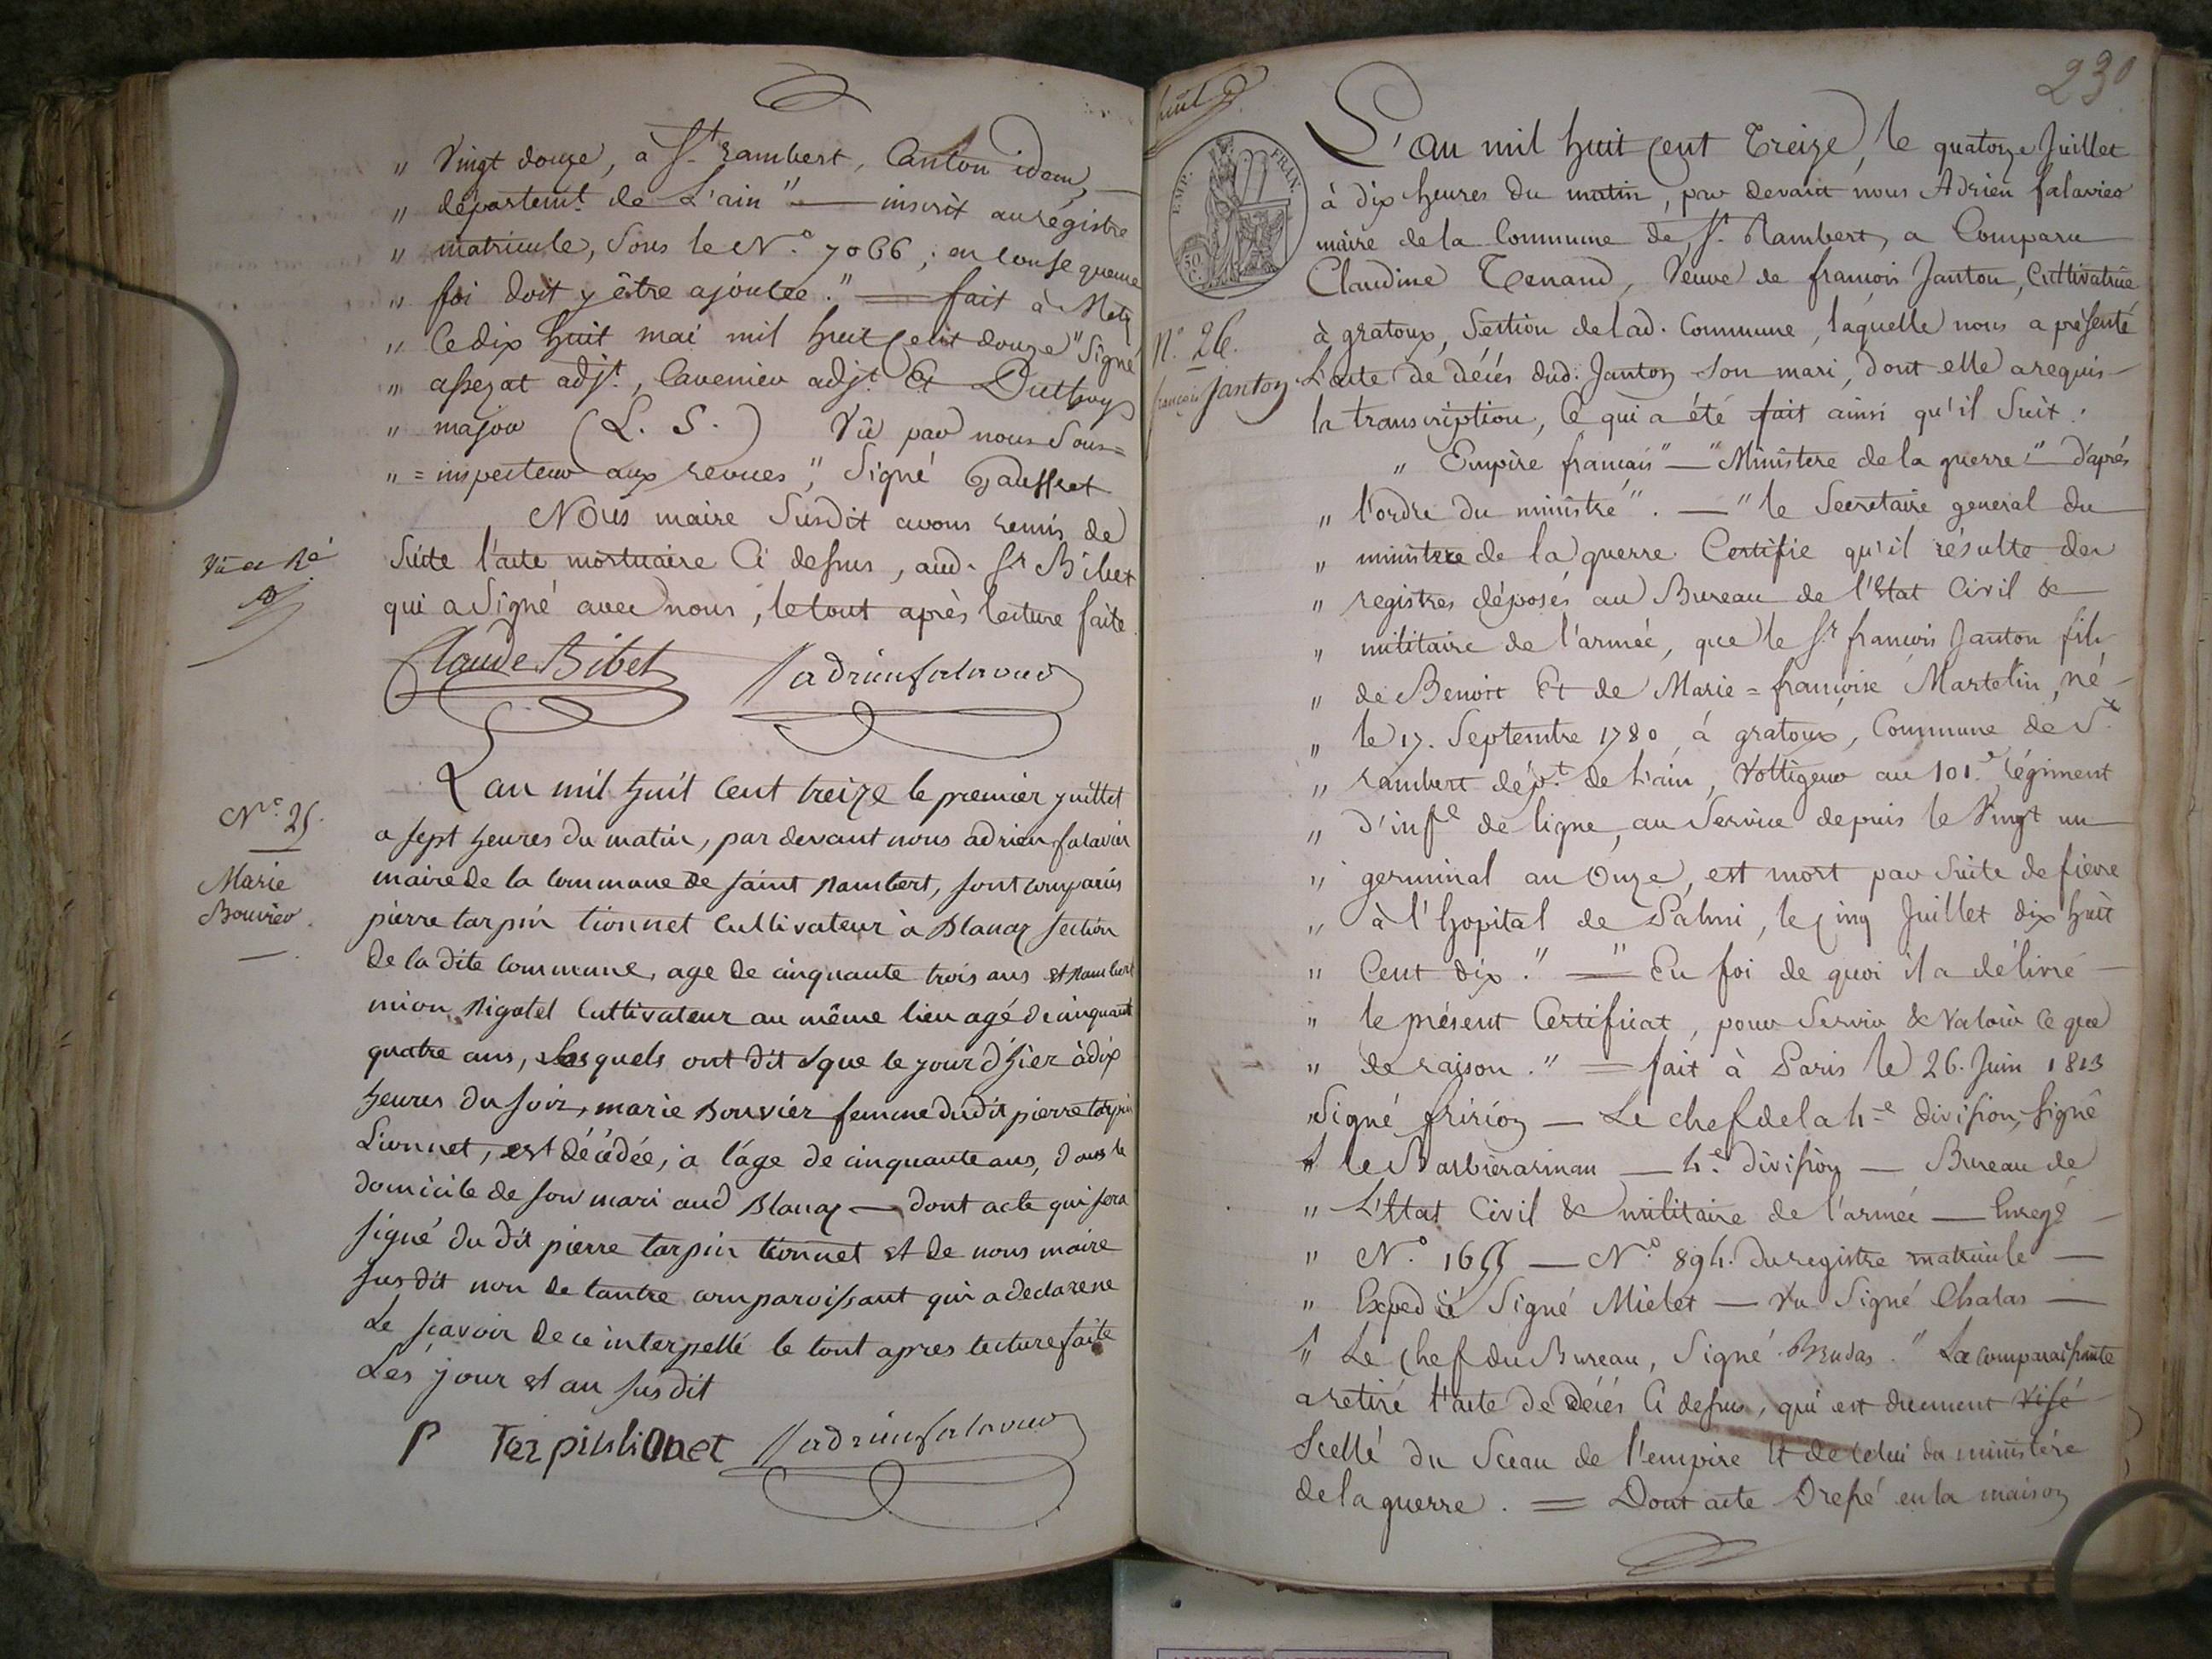 " Vingt douze, à St. rambert, Canton idem, —
" départemt. de L'ain " — inscrit au régistre
" matricule, Sous le N.o 7066 ; en Consequence
" foi doit y être ajoutée. " — fait à Metz
" Ce dix huit mai mil huit Cent douze " Signé
" assezat adjt., Cavenier adjt. Et Duthuy
" major (L. S.) Vû par nous Sous=
" = inspecteur aux revues ", Signé Gausseret
Nous maire Susdit avons remis de
Suite l'acte mortuaire Ci dessus, aud. Sr Bibet
qui a Signé avec nous, le tout après lecture faite.
Claude Bibet adrien falavier
N.o 25.
Marie
Bouvier.
L'an mil huit Cent treize le premier juillet
a sept heures du matin, par devant nous adrien falavier
maire de la Commune de saint Rambert, sont comparus
pierre tarpin lionnet Cultivateur à Blanaz section
de la dite Commune, age de cinquante trois ans et Rambert
mion Rigotel Cultivateur au même lieu agé de cinquante
quatre ans, Lesquels ont dit que le jour d'hier à dix
heures du soir, marie Bouvier femme dudit pierre tarpin
Lionnet, est décédée, à l'âge de cinquante ans, dans le
domicile de son mari aud Blanaz — dont acte qui sera
signé du dit pierre tarpin lionnet et de nous maire
susdit non de lautre comparoissant qui a declare ne
Le scavoir de ce interpellé le tout apres lecture faite
Les jour et an susdit
P Tarpin lionet adrien falavier
230
EMP. FRAN.
50 C.
N.o 26.
françois Janton
L'an mil huit Cent Treize, le quatorze Juillet
à dix heures du matin, par devant nous Adrien falavier
maire de la Commune de St. Rambert, a Comparu
Claudine Tenand, Veuve de françois Janton, Cultivatrice
à gratoux, Section de lad. Commune, laquelle nous a présenté
L'acte de décés dud. Janton Son mari, dont elle a requis —
la transcription, Ce qui a été fait ainsi qu'il Suit :
" Empire français " — " Ministere de la guerre " — D'après
" l'ordre du ministre ". — " le Secretaire general du
" ministere de la guerre Certifie qu'il résulte des
" registres déposés au Bureau de l'Etat Civil &
" militaire de l'armée, que le Sr françois Janton fils
" de Benoit Et de Marie = françoise Martelin, né —
" le 17. Septembre 1780 à gratoux, Commune de St.
" rambert dépt. de L'ain, Voltigeur au 101.e régiment
" d'infe de ligne, au Service depuis le Vingt un
" germinal an Onze, est mort par Suite de fievre
" à l'hopital de Palmi, le Cinq Juillet dix huit
" Cent dix. " — " En foi de quoi il a délivré —
" le présent Certificat, pour Servir & Valoir Ce que
" de raison. " — fait à Paris le 26. Juin 1813
" Signé fririon — Le chef de la 4.e division, Signé
" le Barbierarinan — 4.e division — Bureau de
" L'Etat Civil & militaire de l'armée — Enregé —
" N.o 1655 — N.o 894. du registre matricule —
" Expedié Signé Mielet — Vu Signé Chatas —
" Le chef du Bureau, Signé Brudas. " La Comparaissante
a retiré l'acte de décés Ci dessus, qui est duement Visé
Scellé du Sceau de l'empire Et de Celui du ministére
de la guerre. = Dont acte Dressé en la maison